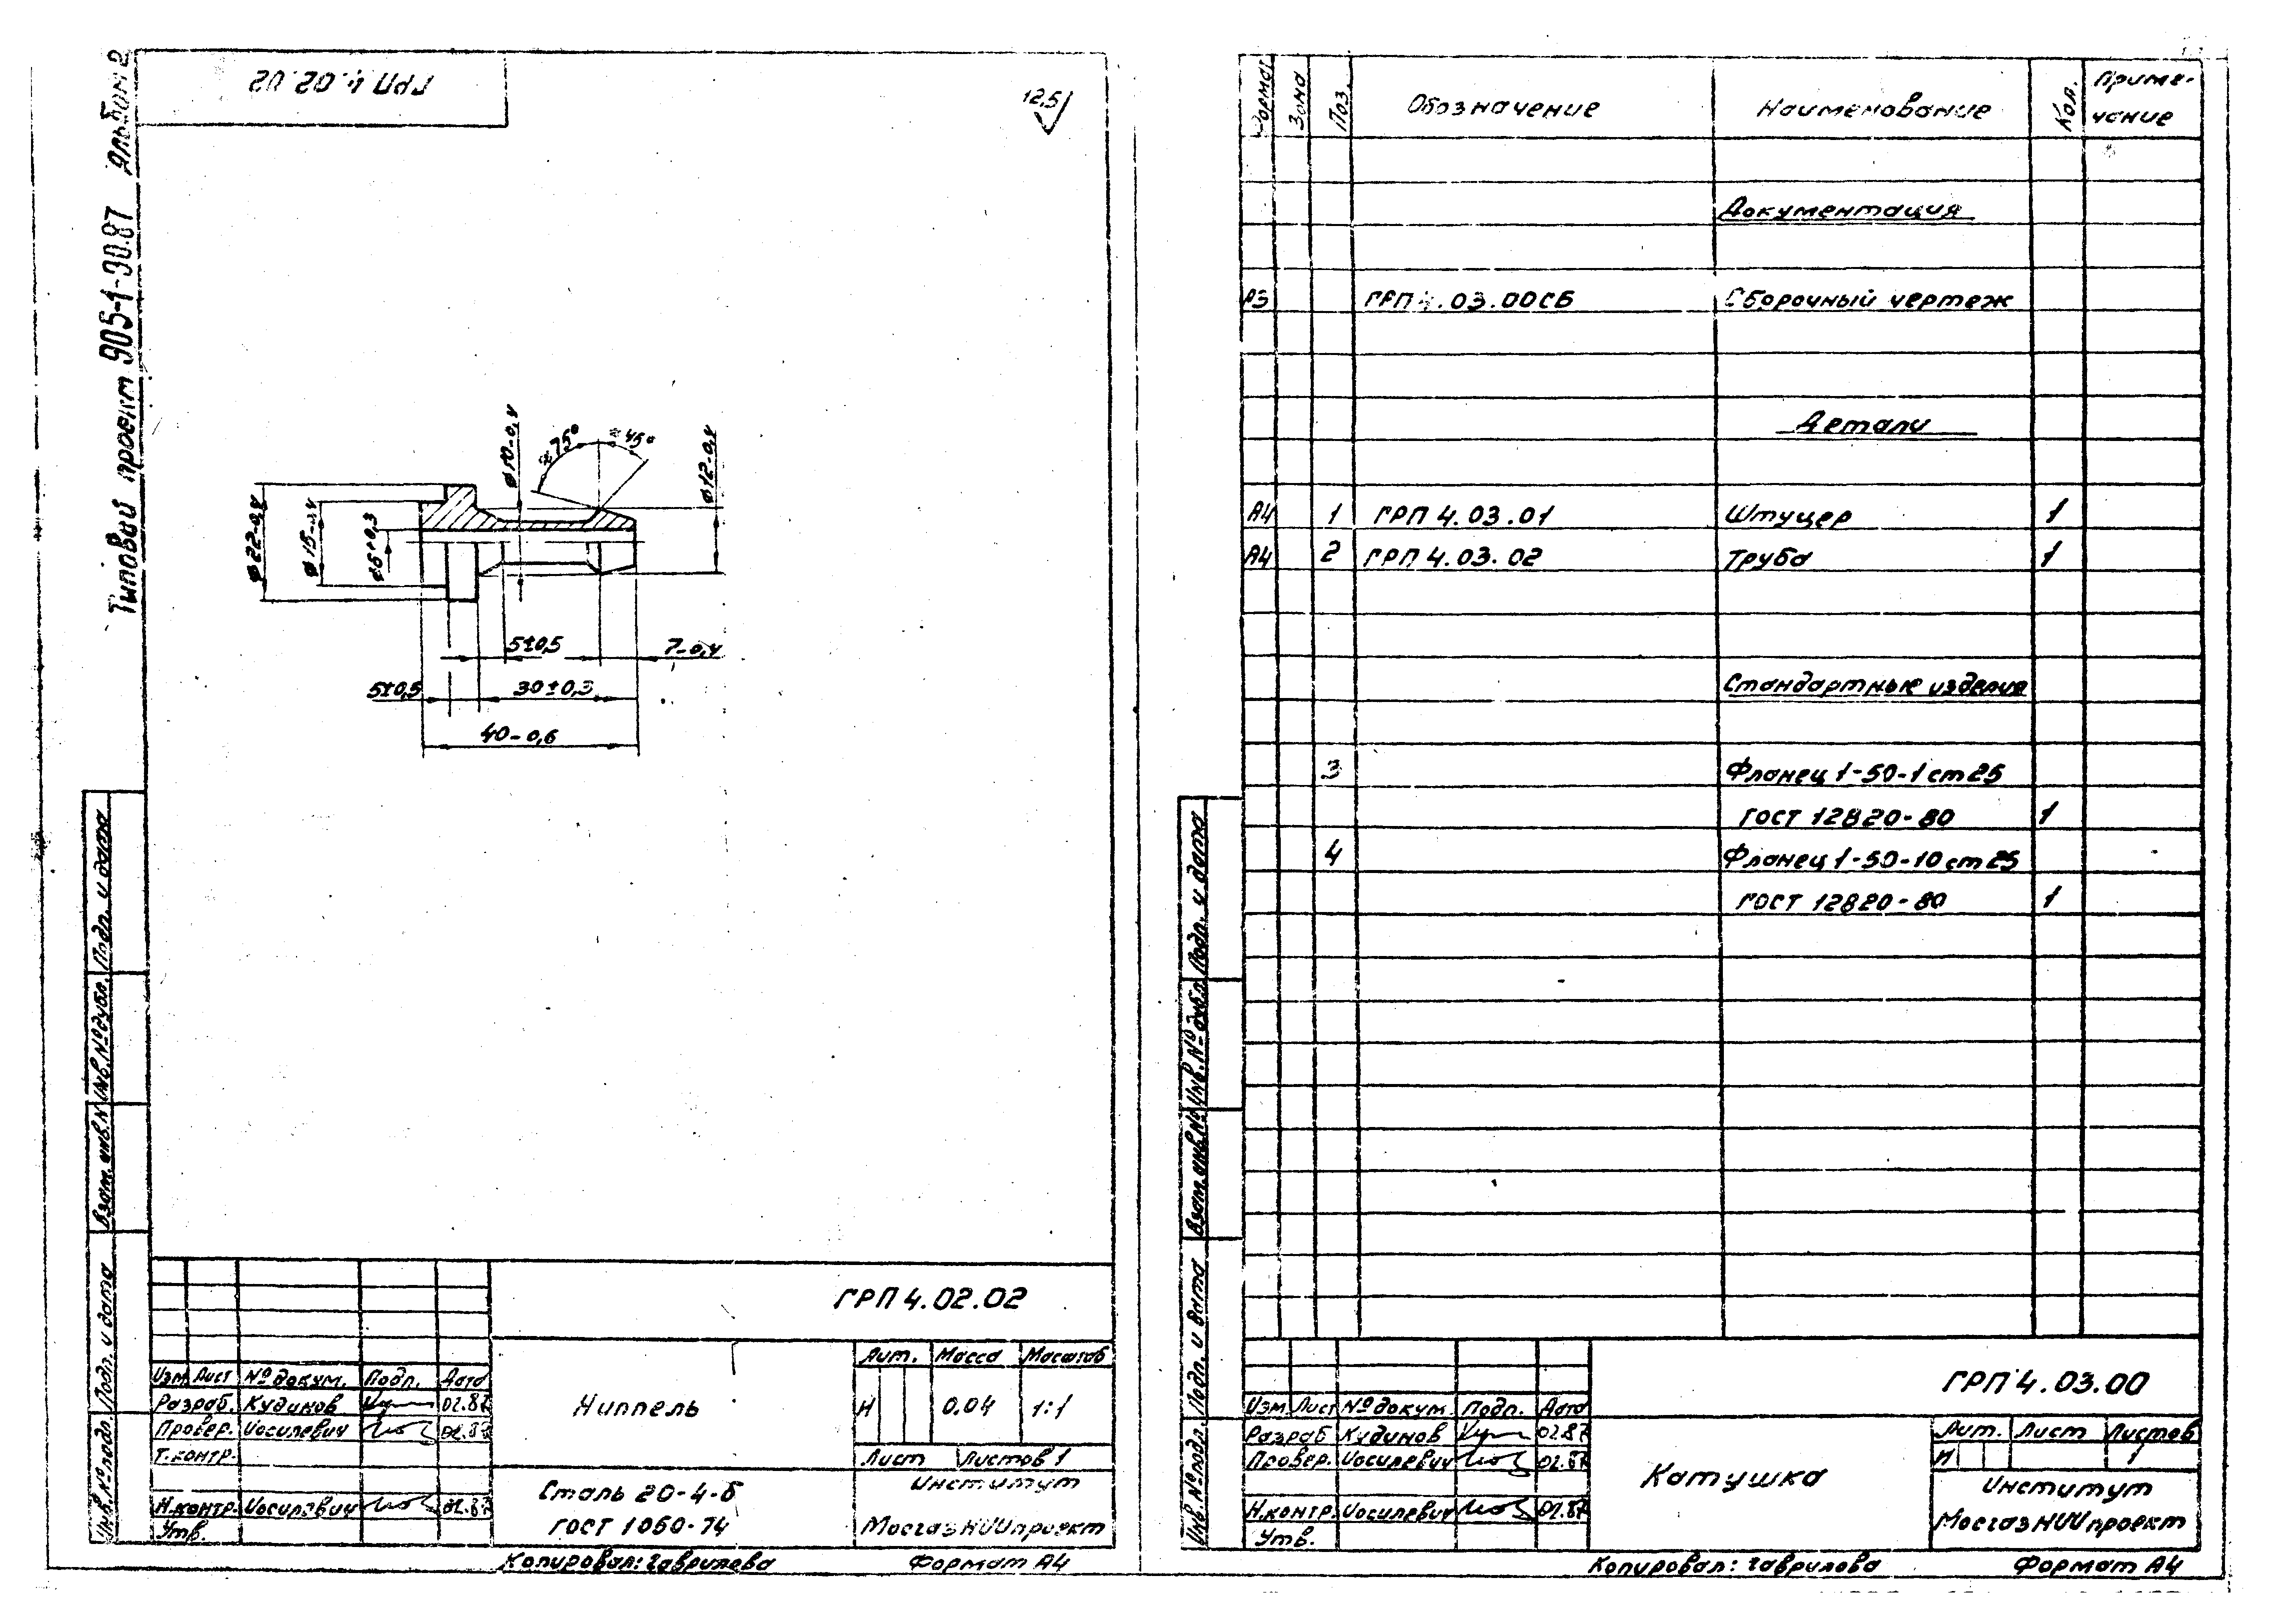 ГРП 4.02.02
Альбом 2
Типовой проект 905-1-30.87
12,5
⌀22-0,4
⌀15-0,4
⌀6+0,3
⌀10-0,4
≈75°
≈45°
⌀12-0,4
5±0,5
7-0,4
5±0,5
30±0,3
40-0,6
Подп. и дата
Инв.№дубл.
Взам.инв.№
Подп. и дата
Инв.№подл.
ГРП 4.02.02
Изм Лист №докум. Подп. Дата
Разраб. Кудинов 02.87
Провер. Иосилевич 02.87
Т.контр.
Н.контр. Иосилевич 02.87
Утв.
Ниппель
Лит. Масса Масштаб
И 0.04 1:1
Лист Листов 1
Сталь 20-4-б
ГОСТ 1050-74
Институт
МосгазНИИпроект
Копировал: Гаврилова Формат А4
Формат Зона Поз. Обозначение Наименование Кол. Приме-
чание
Документация
А3 ГРП 4.03.00СБ Сборочный чертеж
Детали
А4 1 ГРП 4.03.01 Штуцер 1
А4 2 ГРП 4.03.02 Труба 1
Стандартные изделия
3 Фланец 1-50-1 ст 25
ГОСТ 12820-80 1
4 Фланец 1-50-10 ст 25
ГОСТ 12820-80 1
Подп. и дата
Инв.№дубл.
Взам.инв.№
Подп. и дата
Инв.№подл.
ГРП 4.03.00
Изм Лист №докум. Подп. Дата
Разраб Кудинов 02.87
Провер. Иосилевич 02.87
Н.контр. Иосилевич 02.87
Утв.
Катушка
Лит. Лист Листов
И 1
Институт
МосгазНИИпроект
Копировал: Гаврилова Формат А4